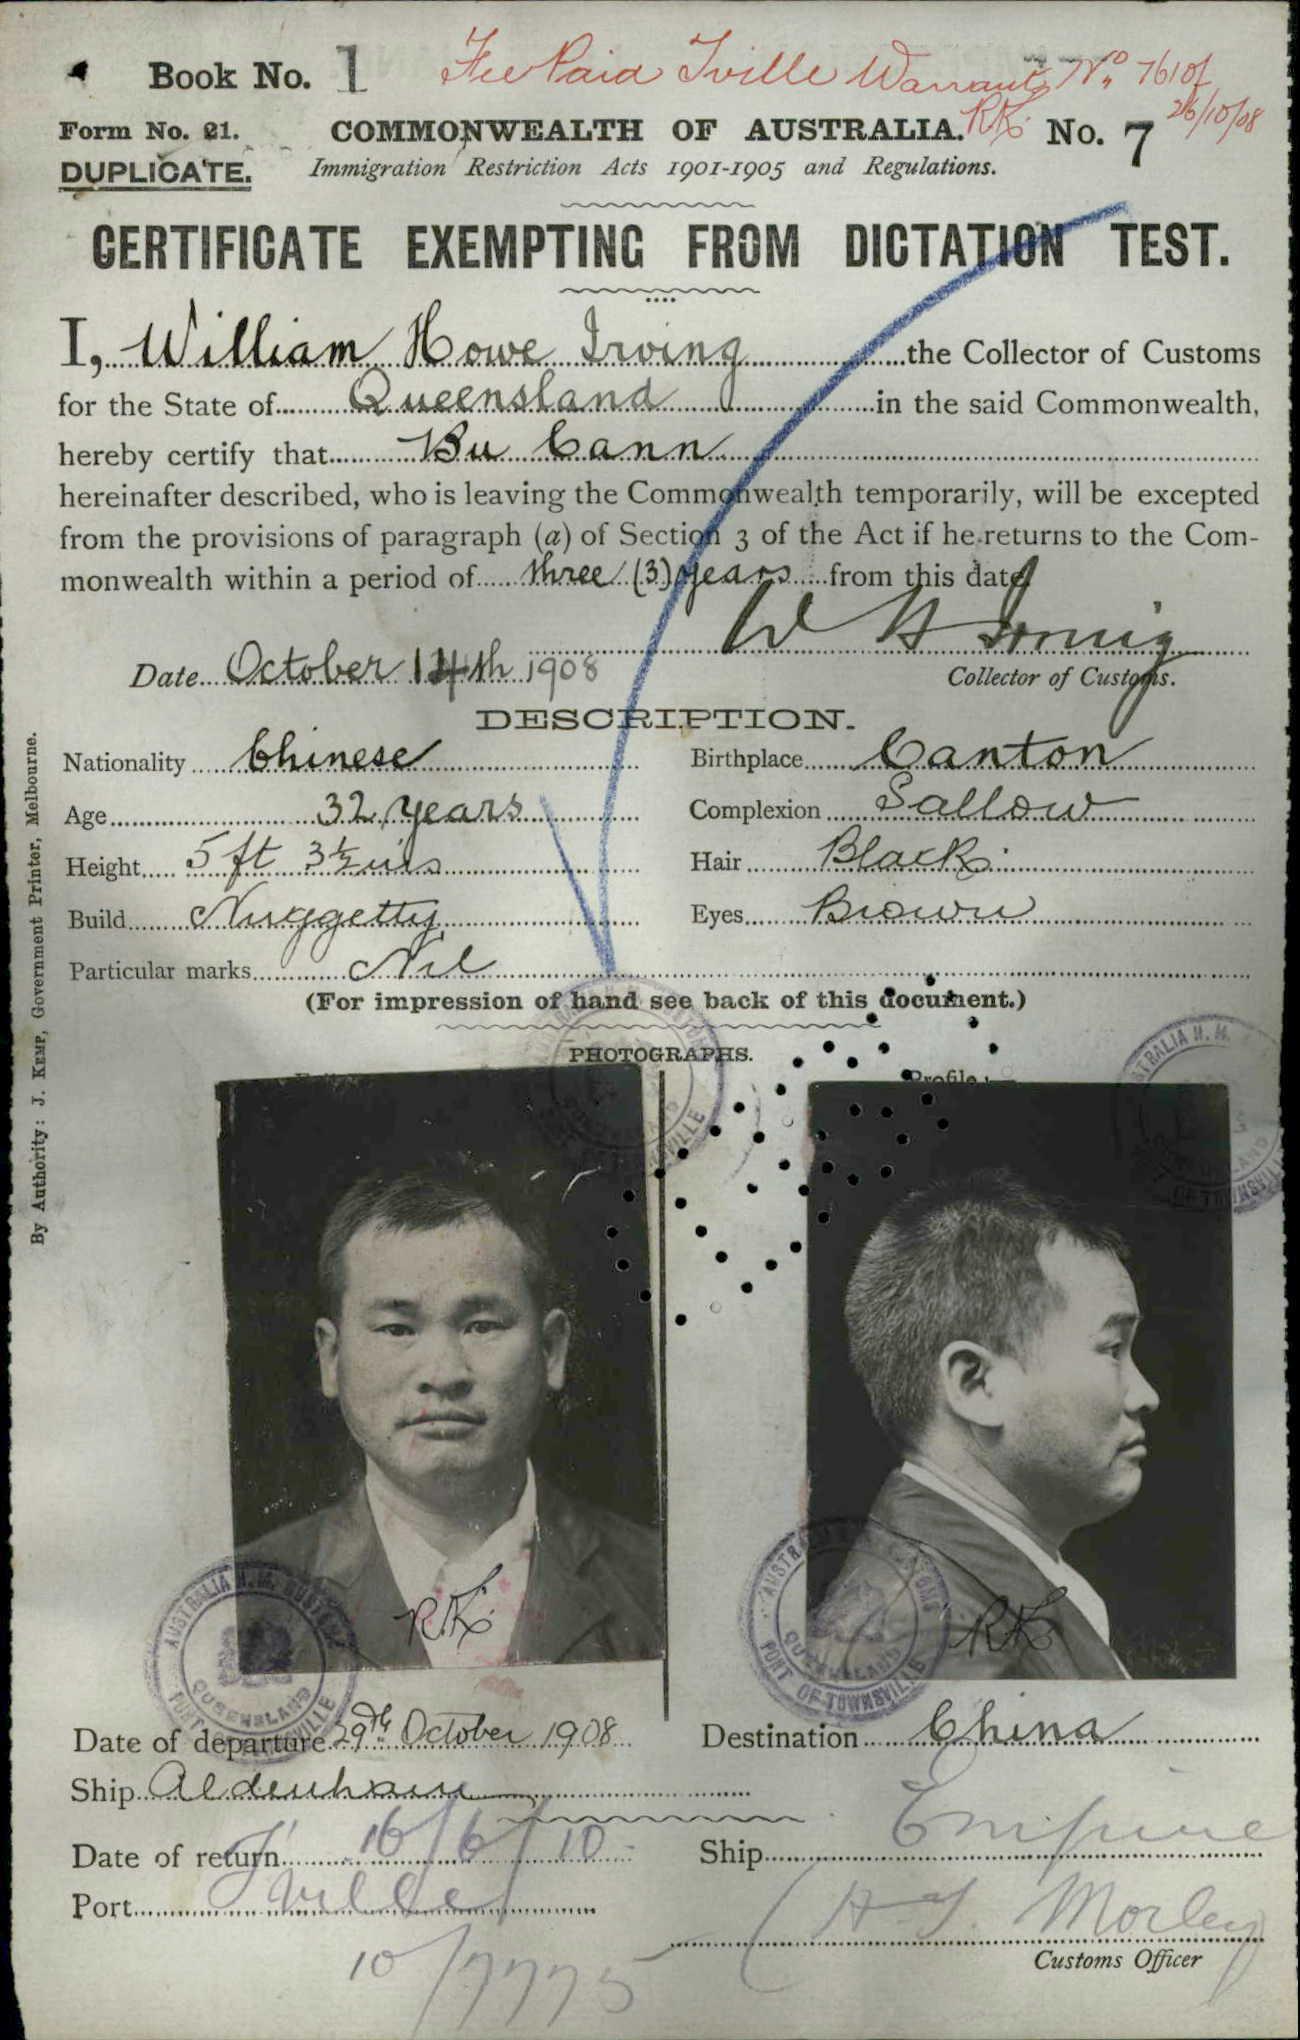 Book No. 1
Fee Paid Tville Warrant No 761 of
26/10/08
Form No. 21.
COMMONWEALTH OF AUSTRALIA.
R.K.
No. 7
DUPLICATE.
Immigration Restriction Acts 1901-1905 and Regulations.
CERTIFICATE EXEMPTING FROM DICTATION TEST.
I, William Howe Irving the Collector of Customs
for the State of Queensland in the said Commonwealth,
hereby certify that Bu Cann
hereinafter described, who is leaving the Commonwealth temporarily, will be excepted
from the provisions of paragraph (a) of Section 3 of the Act if he returns to the Com-
monwealth within a period of three (3) years from this date
W H Irving
Date October 14th 1908
Collector of Customs.
DESCRIPTION.
Nationality Chinese
Birthplace Canton
Age 32 years
Complexion Sallow
Height 5 ft 3½ ins
Hair Black
Build Nuggetty
Eyes Brown
Particular marks Nil
(For impression of hand see back of this document.)
PHOTOGRAPHS.
Profile:—
R.K.
RK
AUSTRALIA H.M. CUSTOMS
QUEENSLAND
PORT OF TOWNSVILLE
Date of departure 29th October 1908
Destination China
Ship Aldenham
Date of return 16/6/10
Ship Empire
Port Tville
H. J. Morley
Customs Officer
10/7775
By Authority: J. KEMP, Government Printer, Melbourne.